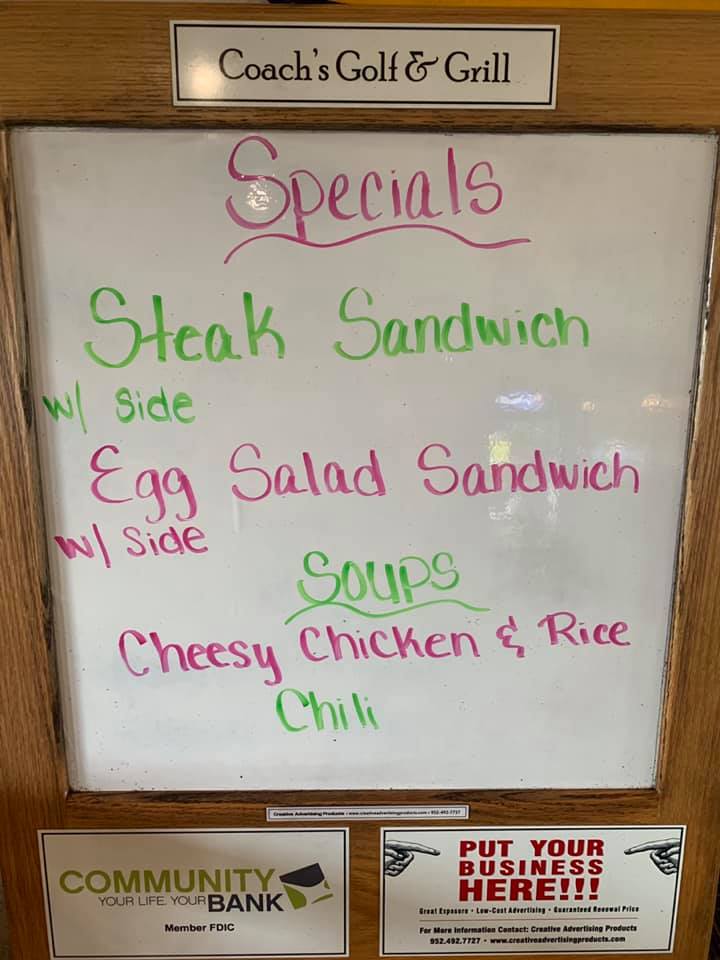 Coach's Golf & Grill
Specials
Steak Sandwich
w/ Side
Egg Salad Sandwich
w/ Side
Soups
Cheesy Chicken & Rice
Chili
Creative Advertising Products • www.creativeadvertisingproducts.com • 952-492-7727
COMMUNITY
YOUR LIFE. YOUR BANK
Member FDIC
PUT YOUR
BUSINESS
HERE!!!
Great Exposure • Low-Cast Advertising • Guaranteed Renewal Price
For More Information Contact: Creative Advertising Products
952.492.7727 • www.creativeadvertisingproducts.com